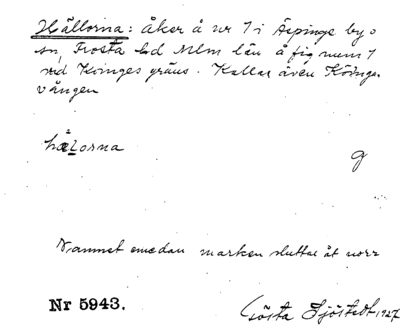 Hällorna: Åker å nr 7 i Äspinge by o
sn, Frosta hd Mlm län å fig num 7
vid Köinges gräns. Kallas även Köinge-
vången
hælorna
g
Namnet emedan marken sluttar åt norr
Nr 5943.
Gösta Sjöstedt 1927